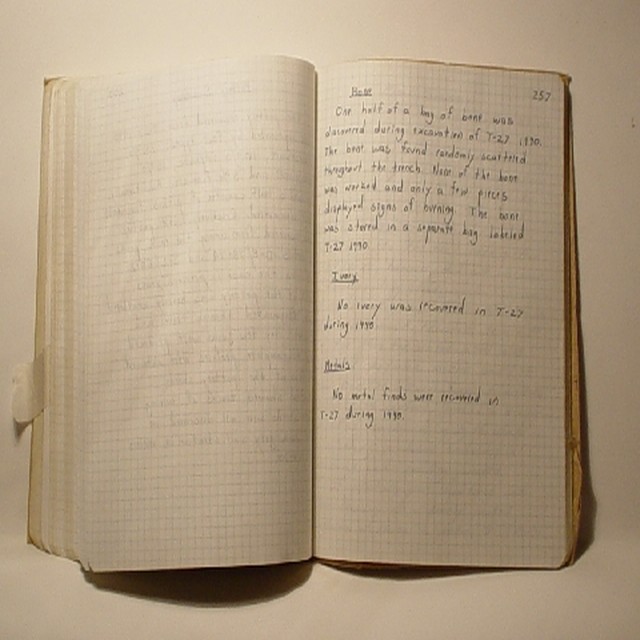 257
Bone
One half of a bag of bone was
discovered during excavation of T-27 1990.
The bone was found randomly scattered
throughout the trench. None of the bone
was worked and only a few pieces
displayed signs of burning. The bone
was stored in a separate bag labeled
T-27 1990
Ivory
No ivory was recovered in T-27
during 1990
Metals
No metal finds were recovered in
T-27 during 1990.